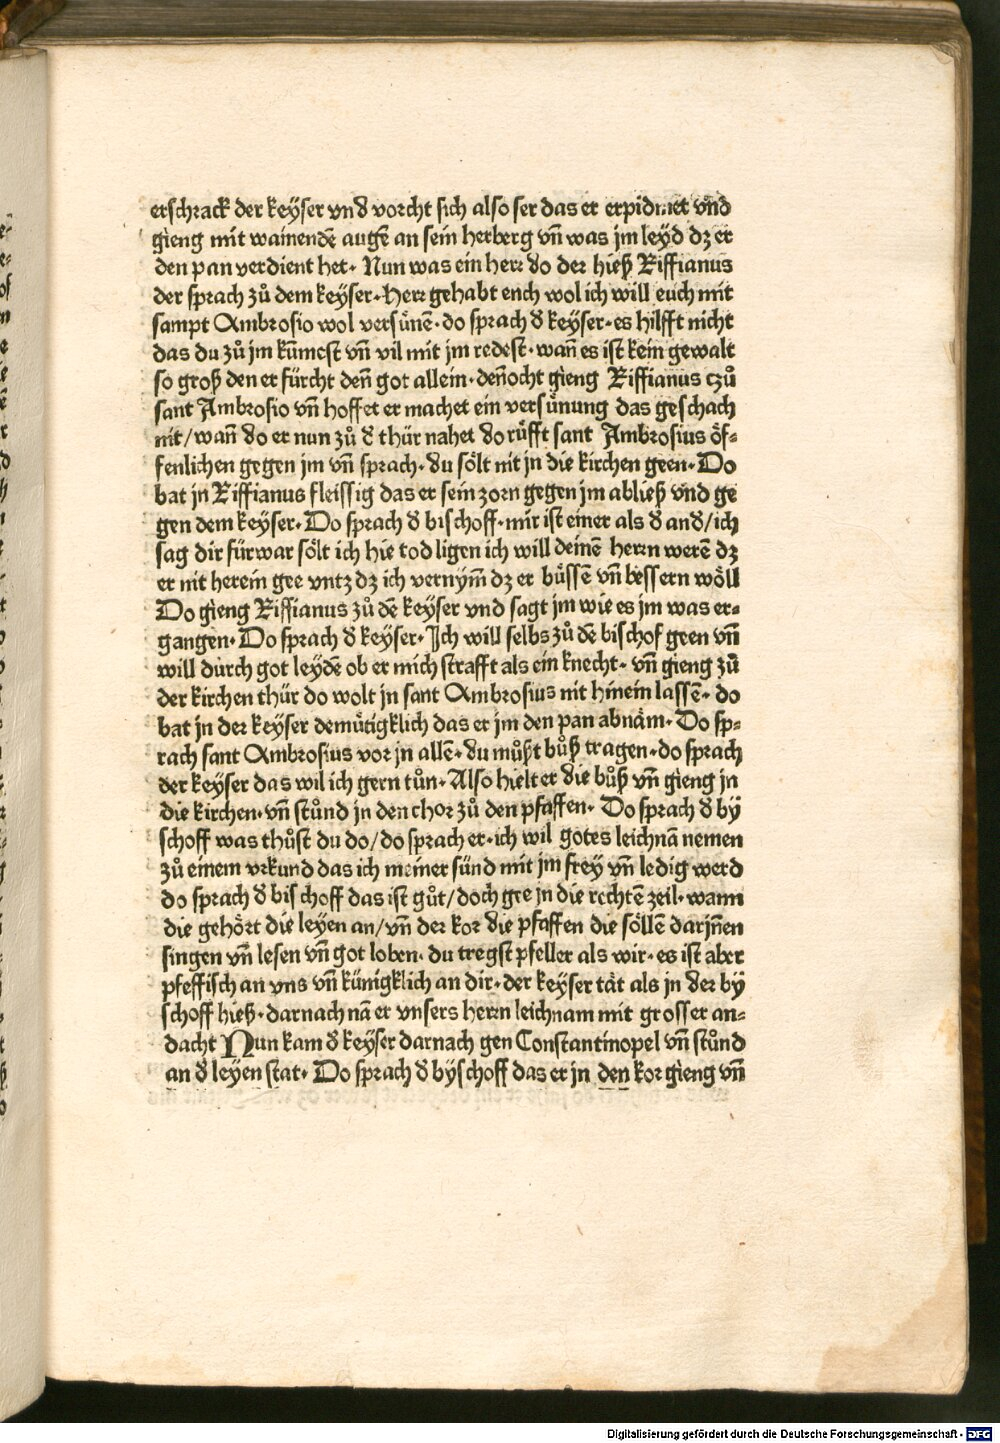 erschrack der keyser vnd vorcht sich also ser das er erpidmet vnd
gieng mit wainendē augē an sein herberg vn̄ was jm leyd dz er
den pan verdient het· Nun was ein herr do der hieß Riffianus
der sprach zů dem keyser·herr gehabt euch wol ich will euch mit
sampt Ambrosio wol versünē· do sprach d̕ keyser·es hilfft nicht
das du zů jm kūmest vn̄ vil mit jm redest·wan̄ es ist kein gewalt
so groß den er fürcht den̄ got allein·den̄ocht gieng Riffianus czů
sant Ambrosio vn̄ hoffet er machet ein versünung das geschach
nit/wan̄ do er nun zů d̕ thür nahet do růfft sant Ambrosius öf⸗
fenlichen gegen jm vn̄ sprach·du sölt nit in die kirchen geen·Do
bat jn Riffianus fleissig das er sein zorn gegen jm abließ vnd ge
gen dem keyser·Do sprach d̕ bischoff·mir ist einer als d̕ and̕/ich
sag dir fürwar sölt ich hie tod ligen ich will deinē herrn werē dz
er nit herein gee vntz dz ich vernym̄ dz er büssē vn̄ bessern wöll
Do gieng Riffianus zů dē keyser vnd sagt jm wie es jm was er⸗
gangen·Do sprach d̕ keyser·Ich will selbs zů dē bischof geen vn̄
will durch got leydē ob er mich strafft als ein knecht·vn̄ gieng zů
der kirchen thür do wolt jn sant Ambrosius nit hinein lassē·do
bat jn der keyser demütigklich das er jm den pan abnäm·Do sp⸗
rach sant Ambrosius vor jn allē·du můßt bůß tragen·do sprach
der keyser das wil ich gern tůn·Also hielt er die bůß vn̄ gieng jn
die kirchen·vn̄ stůnd jn den chor zů den pfaffen·Do sprach d̕ by
schoff was thůst du do/do sprach er·ich wil gotes leichnā nemen
zů einem vrkund das ich meiner sünd mit jm frey vn̄ ledig werd
do sprach d̕ bischoff das ist gůt/doch gee jn die rechtē zeil·wann
die gehört die leyen an/vn̄ der kor die pfaffen die söllē darjn̄en
singen vn̄ lesen vn̄ got loben·du tregst pfeller als wir·es ist aber
pfeffisch an vns vn̄ künigklich an dir·der keyser tät als jn der by
schoff hieß·darnach nā er vnsers herrn leichnam mit grosser an⸗
dacht Nun kam d̕ keyser darnach gen Constantinopel vn̄ stůnd
an d̕ leyen stat·Do sprach d̕ byschoff das er jn den kor gieng vn̄
Digitalisierung gefördert durch die Deutsche Forschungsgemeinschaft - DFG